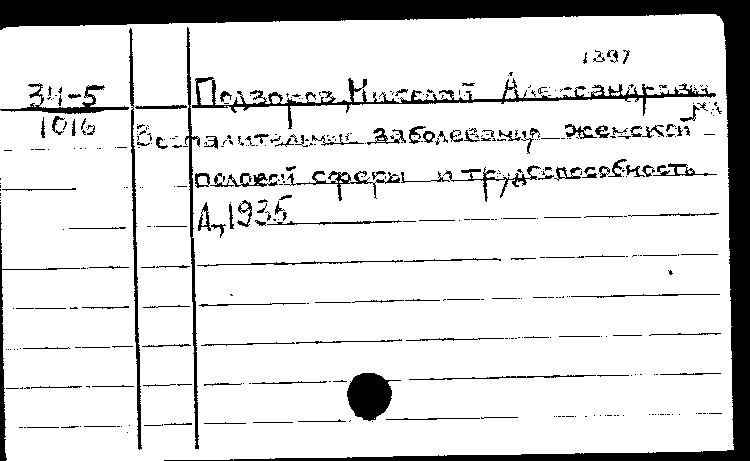 1397
34-5 Подзоров, Николай Александрович
1016 Воспалительные заболевания женской
половой сферы и трудоспособность.
Л., 1935.